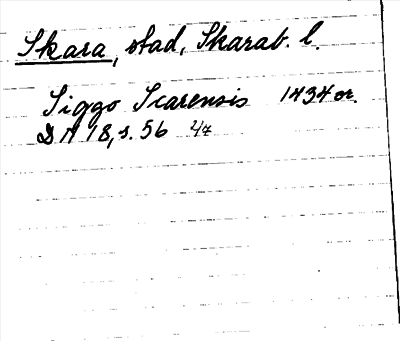 Skara, stad, Skarab. l.
Siggo Scarensis 1434 or.
DN 18, s. 56 4/2